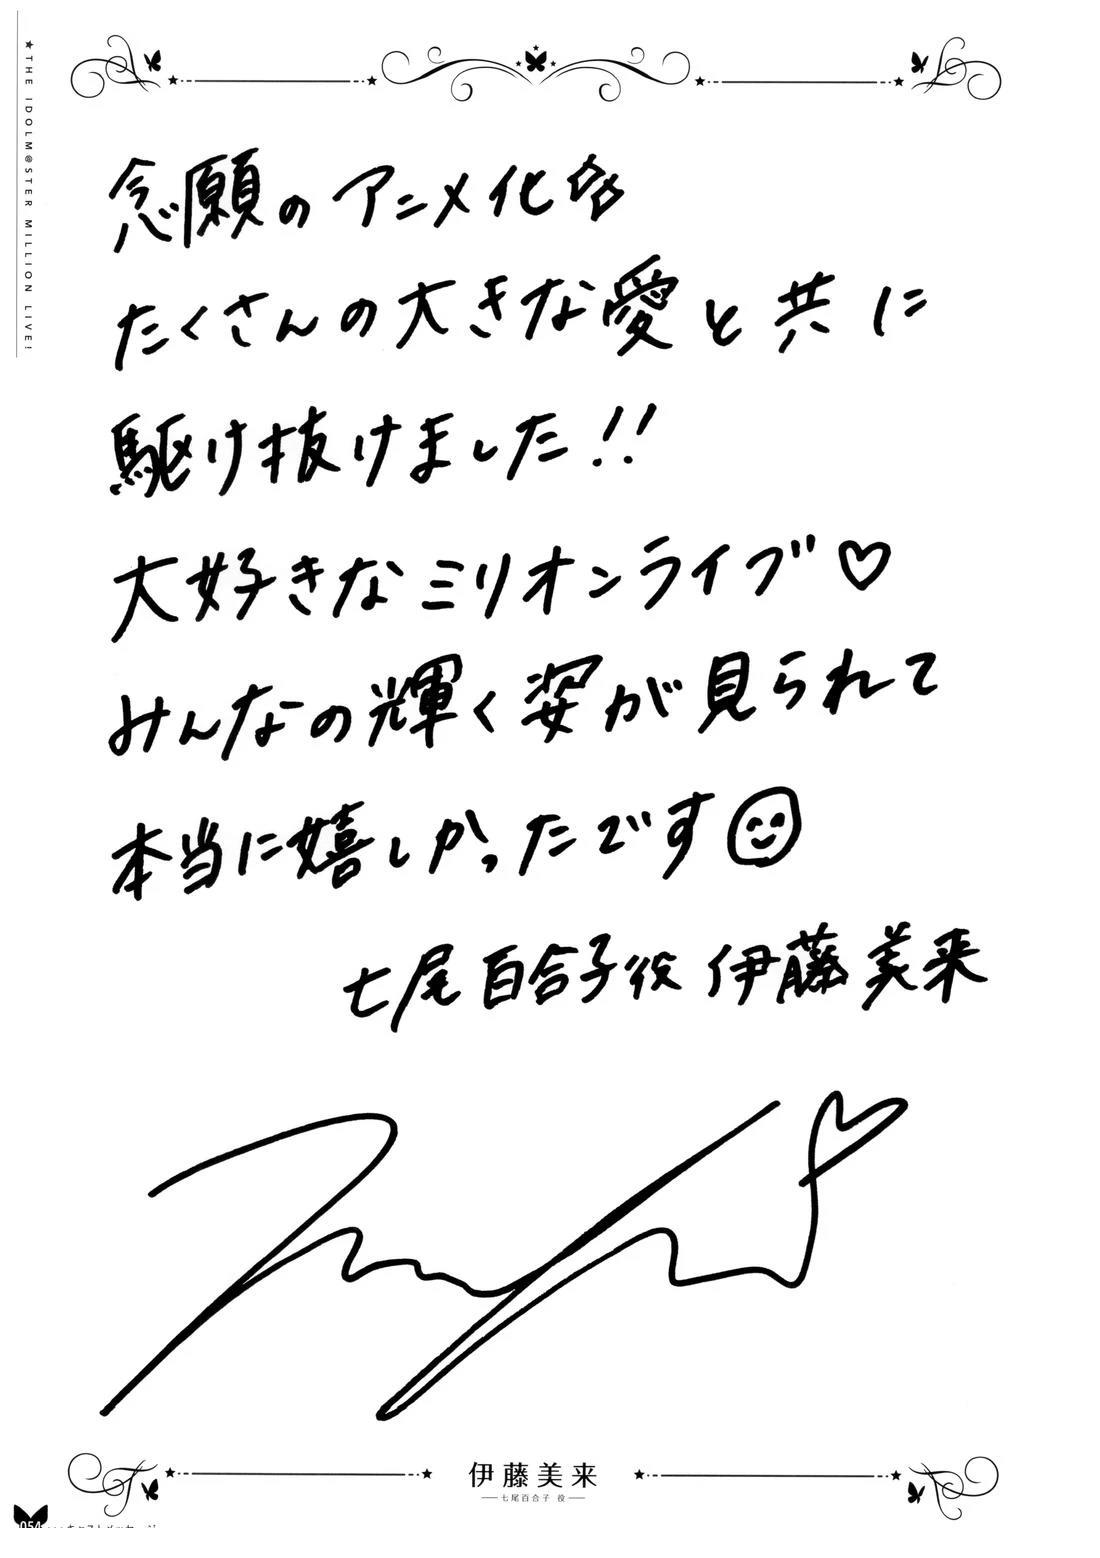 ★THE IDOLM@STER MILLION LIVE!
念願のアニメ化☆☆
たくさんの大きな愛と共に
駆け抜けました!!
大好きなミリオンライブ♡
みんなの輝く姿が見られて
本当に嬉しかったです
七尾百合子役 伊藤美来
伊藤美来
七尾百合子 役
054 キャストメッセージ